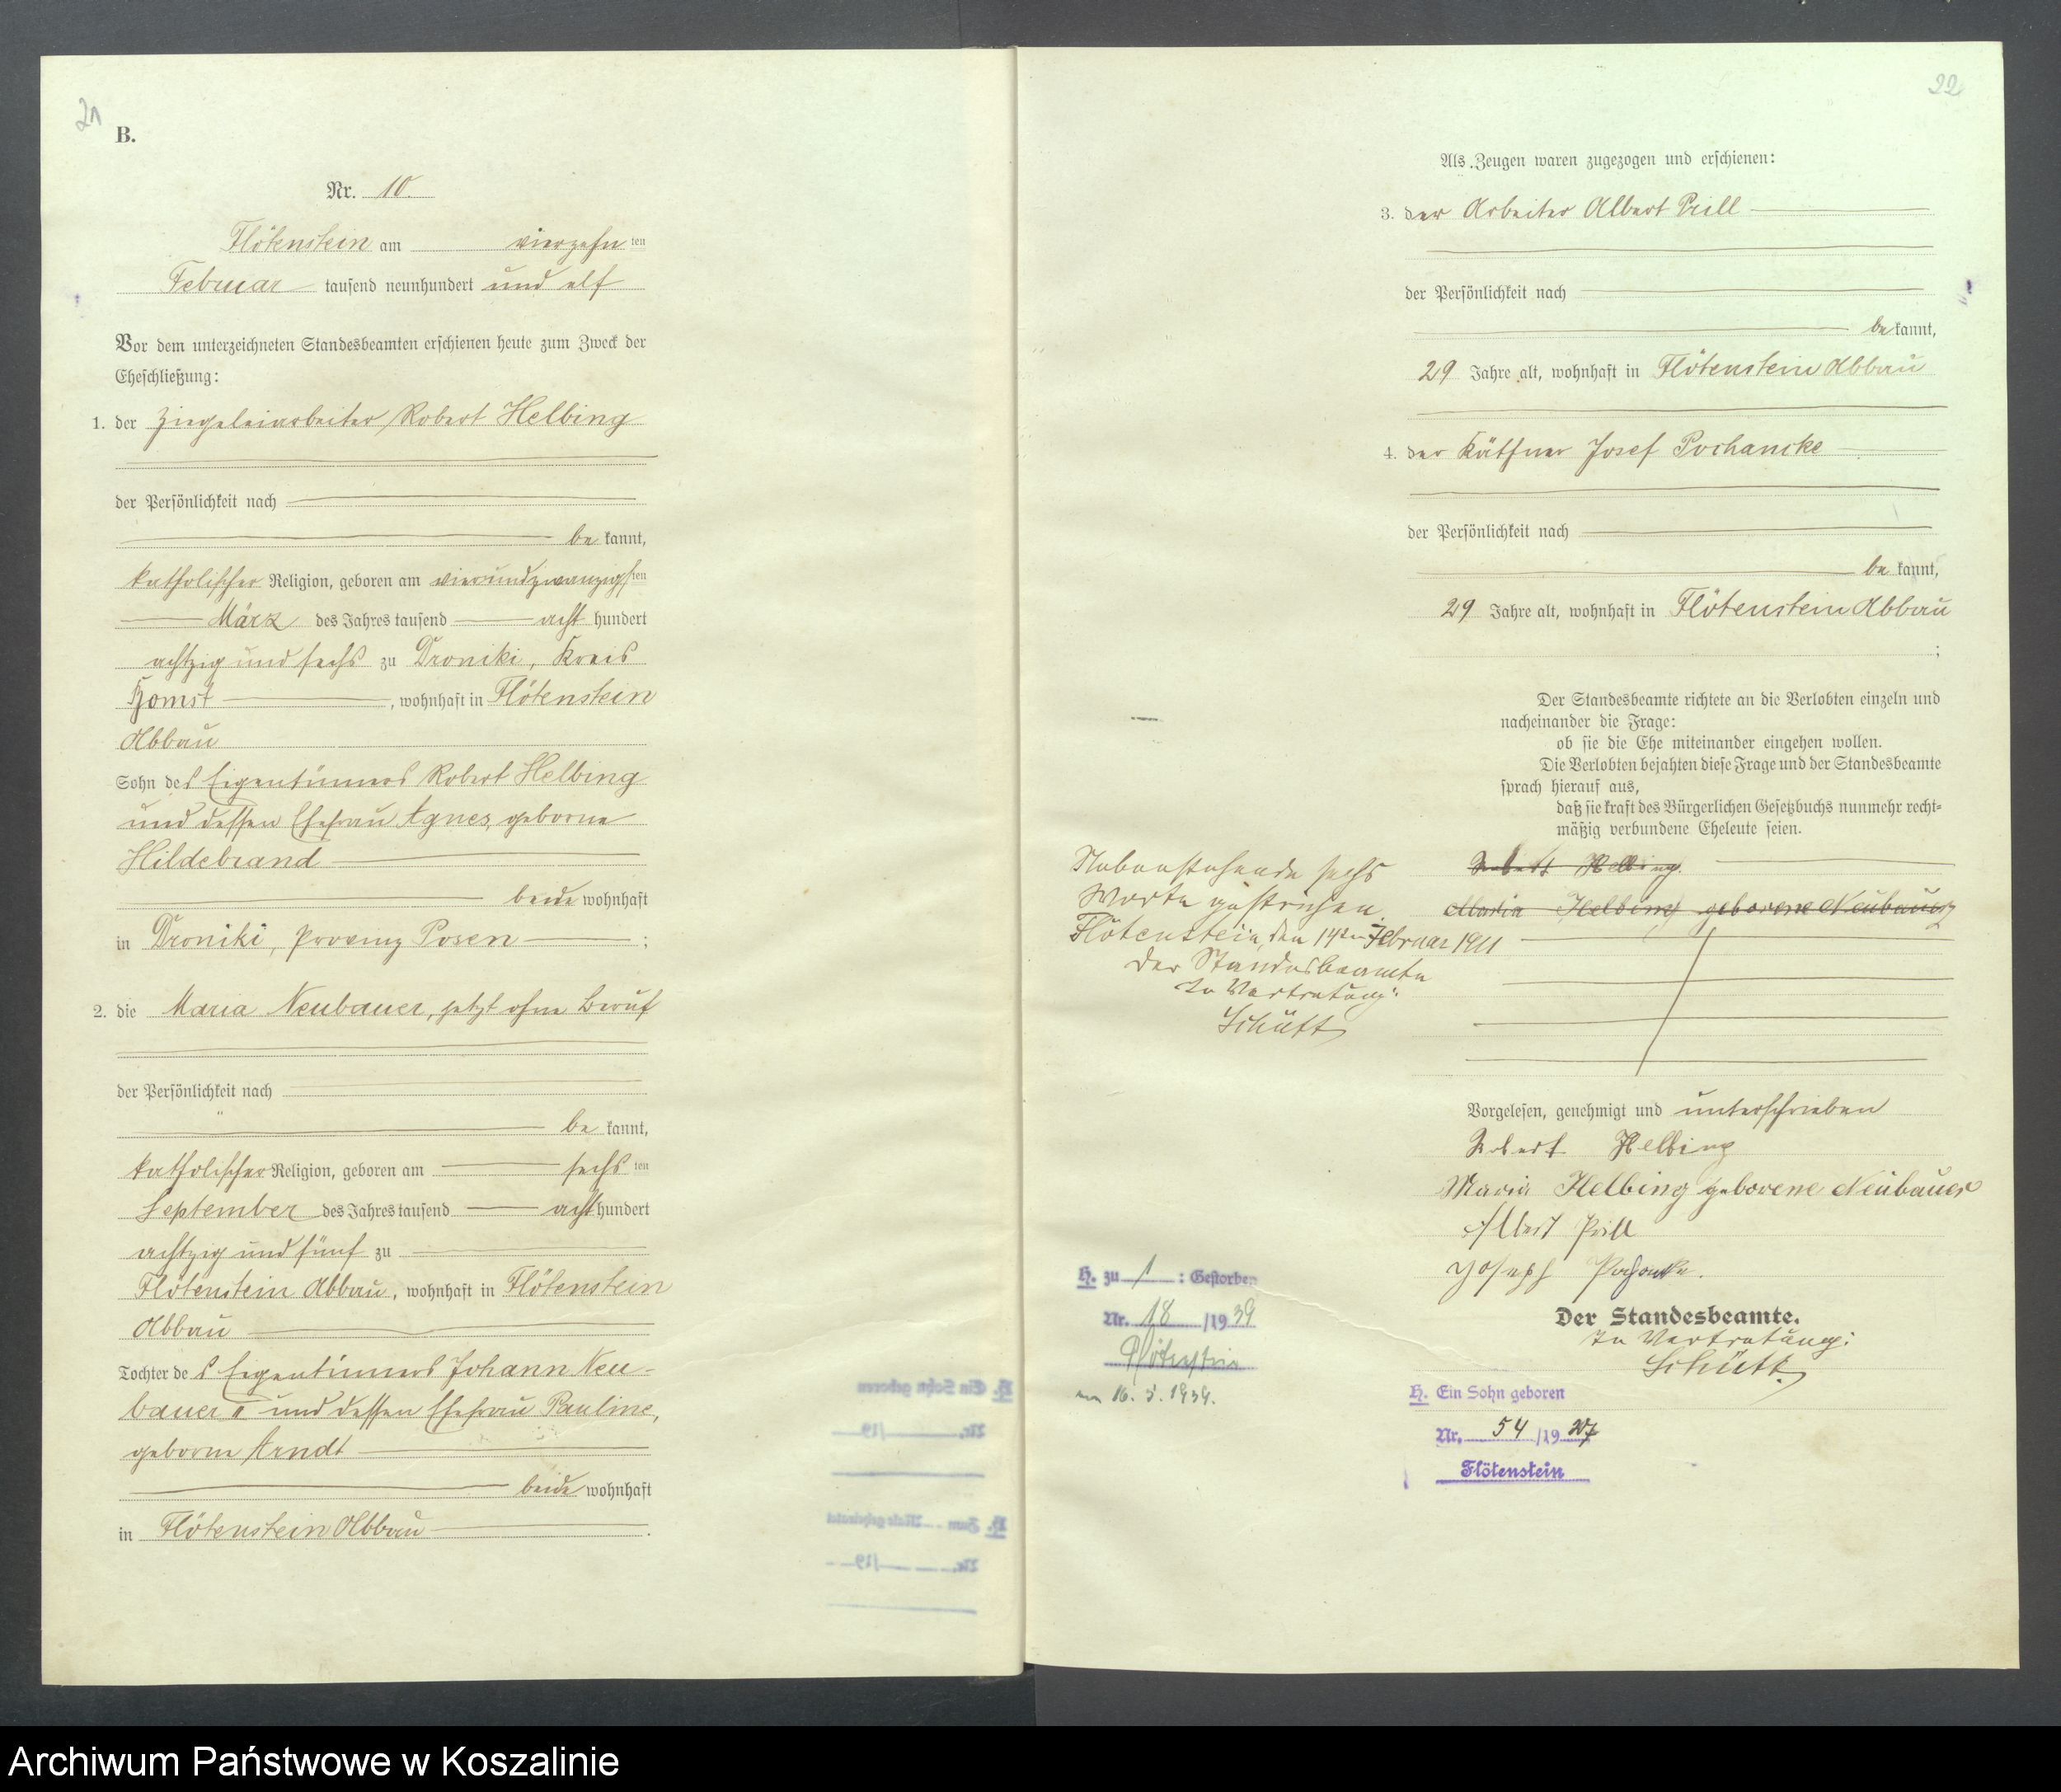 21
B.
Nr. 10.
Flötenstein am vierzehn ten
Februar tausend neunhundert und elf
Vor dem unterzeichneten Standesbeamten erschienen heute zum Zweck der
Eheschließung:
1. der Ziegeleiarbeiter Robert Helbing
der Persönlichkeit nach
be kannt,
katholischer Religion, geboren am vierundzwanzigsten
März des Jahres tausend acht hundert
achtzig und sechs zu Droniki, Kreis
Bomst, wohnhaft in Flötenstein
Abbau
Sohn des Eigentümers Robert Helbing
und dessen Ehefrau Agnes, geborne
Hildebrand
beide wohnhaft
in Droniki, Provinz Posen ;
2. die Maria Neubauer, jetzt ohne Beruf
der Persönlichkeit nach
be kannt,
katholischer Religion, geboren am sechs ten
September des Jahres tausend acht hundert
achtzig und fünf zu
Flötenstein Abbau, wohnhaft in Flötenstein
Abbau
Tochter des Eigentümers Johann Neu-
bauer II und dessen Ehefrau Pauline,
geborne Arndt
beide wohnhaft
in Flötenstein Abbau .
22
Als Zeugen waren zugezogen und erschienen:
3. der Arbeiter Albert Prill
der Persönlichkeit nach
be kannt,
29 Jahre alt, wohnhaft in Flötenstein Abbau
4. der Käthner Josef Pochancke
der Persönlichkeit nach
be kannt,
29 Jahre alt, wohnhaft in Flötenstein Abbau
;
Der Standesbeamte richtete an die Verlobten einzeln und
nacheinander die Frage:
ob sie die Ehe miteinander eingehen wollen.
Die Verlobten bejahten diese Frage und der Standesbeamte
sprach hierauf aus,
daß sie kraft des Bürgerlichen Gesetzbuchs nunmehr recht-
mäßig verbundene Eheleute seien.
Robert Helbing.
Maria Helbing geborene Neubauer
Nebenstehende sechs
Worte gestrichen.
Flötenstein, den 14ten Februar 1911
Der Standesbeamte
In Vertretung:
Schütt
Vorgelesen, genehmigt und unterschrieben
Robert Helbing
Maria Helbing geborene Neubauer
Albert Prill
Joseph Pochanke.
Der Standesbeamte.
In Vertretung:
Schütt
H. zu 1 : Gestorben
Nr. 18 /1939
Flötenstein
am 16. 5. 1939.
H. Ein Sohn geboren
Nr. 54 /1927
Flötenstein
H. Ein Sohn geboren
Nr. /19
H. Zum Male geheiratet
Nr. /19
Archiwum Państwowe w Koszalinie